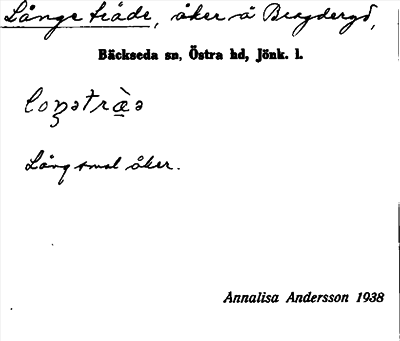 Långe träde, åker å Bragdergd,
Bäckseda sn, Östra hd, Jönk. l.
Långsmal åker.
Annalisa Andersson 1938